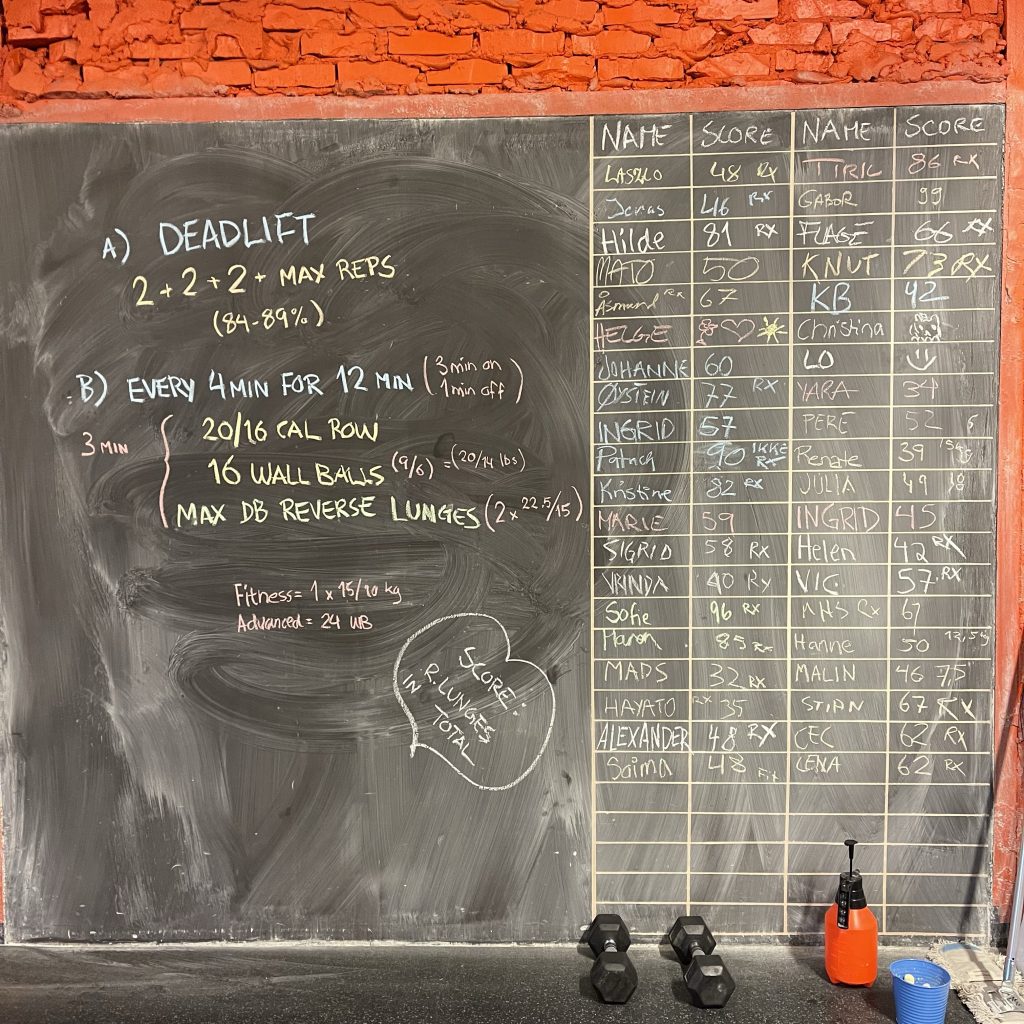 A) DEADLIFT
2+2+2+ MAX REPS
(84-89%)
B) EVERY 4 MIN FOR 12 MIN (3 min on
1 min off)
3 MIN
20/16 CAL ROW
16 WALL BALLS (9/6) = (20/14 lbs)
MAX DB REVERSE LUNGES (2 x 22.5/15)
Fitness = 1 x 15/10 kg
Advanced = 24 WB
SCORE:
R. LUNGES
IN TOTAL
NAME SCORE NAME SCORE
LASZLO 48 RX TIRIL 86 RX
Jonas 46 RX GABOR 99
Hilde 81 RX FLAGE 66 RX
MATO 50 KNUT 73 RX
Åsmund RX 67 KB 42
HELGE Christina
JOHANNE 60 LO
ØYSTEIN 77 RX YARA 34
INGRID 57 PERE 52
Patrick 90 IKKE RX Renate 39
Kristine 82 RX JULIA 49
MARIE 59 INGRID 45
SIGRID 58 RX Helen 42 RX
VRINDA 40 RX VIC 57 RX
Sofie 96 RX RX 67
Manon 85 RX Hanne 50 12,5kg
MADS 32 RX MALIN 46 7,5
HAYATO RX 35 STIAN 67 RX
ALEXANDER 48 RX CEC 62 RX
Saima 48 LENA 62 RX